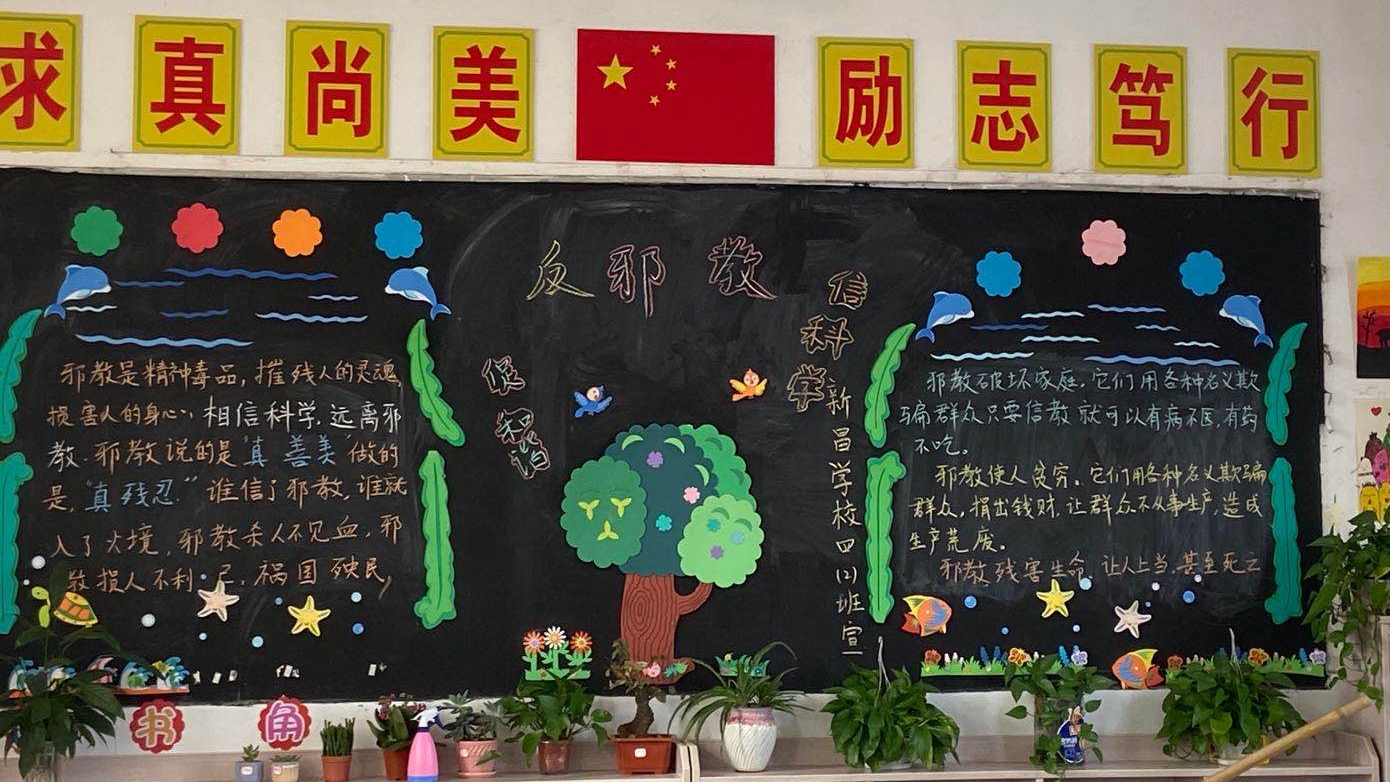 求真尚美 励志笃行
反邪教
信科学
促和谐
新昌学校四(2)班宣
邪教是精神毒品,摧残人的灵魂,
损害人的身心,相信科学,远离邪
教.邪教说的是"真善美"做的
是,"真残忍."谁信了邪教,谁就
入了火境,邪教杀人不见血,邪
教损人不利己,祸国殃民,
邪教破坏家庭.它们用各种名义欺
骗群众只要信教就可以有病不医,有药
不吃。
邪教使人贫穷。它们用各种名义欺骗
群众,捐出钱财,让群众不从事生产,造成
生产荒废。
邪教残害生命,让人上当,甚至死亡
书角